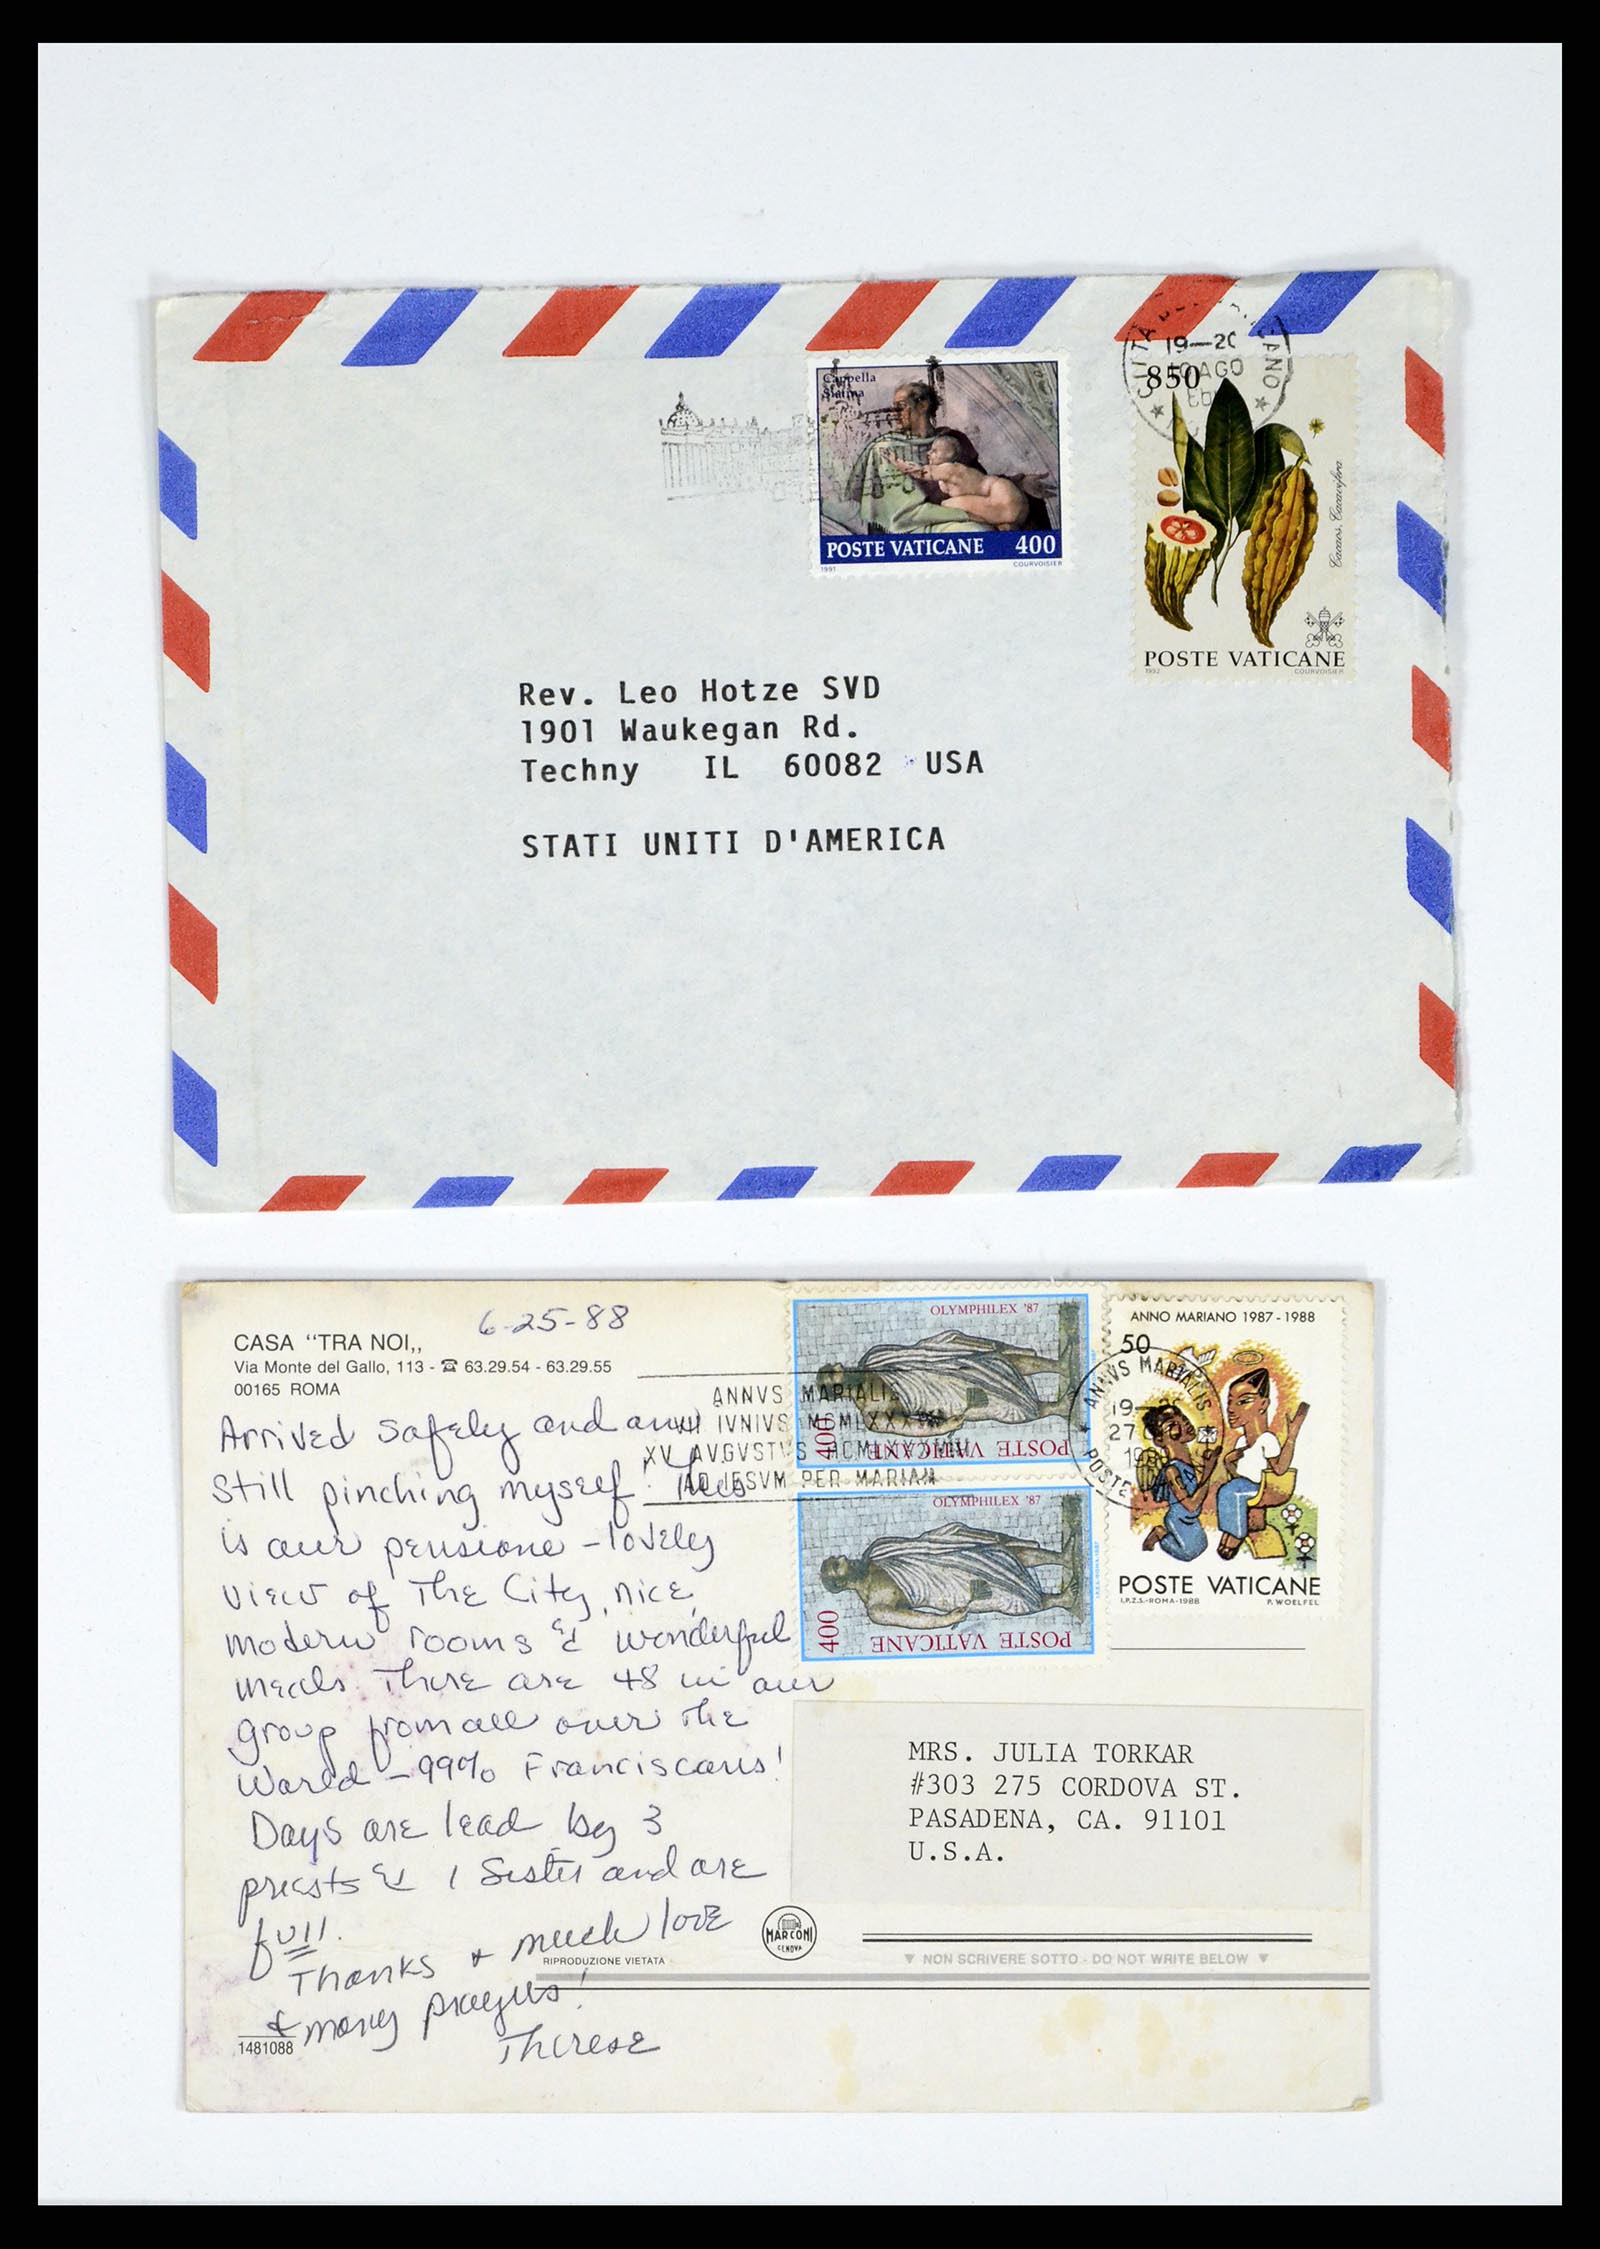 CITTÀ DEL VATICANO
19—20
10 AGO
Cappella
Sistina
POSTE VATICANE 400
1991 COURVOISIER
850
Cacaos, Cacavifera
POSTE VATICANE
1992 COURVOISIER
Rev. Leo Hotze SVD
1901 Waukegan Rd.
Techny IL 60082 USA
STATI UNITI D'AMERICA
6-25-88
CASA "TRA NOI,,
Via Monte del Gallo, 113 - ☎ 63.29.54 - 63.29.55
00165 ROMA
Arrived safely and am
still pinching myself! This
is our pensione - lovely
view of the City, nice,
modern rooms & wonderful
meals. There are 48 in our
group from all over the
World - 99% Franciscans!
Days are lead by 3
priests & 1 Sister and are
full.
Thanks & much love
& many prayers!
Therese
1481088
RIPRODUZIONE VIETATA
MARCONI
GENOVA
OLYMPHILEX '87
400
POSTE VATICANE
OLYMPHILEX '87
400
POSTE VATICANE
I.P.Z.S.-ROMA-1987
ANNVS MARIALIS
IVNIVS
XV AVGVSTVS MCMLXXXVIII
AD IESVM PER MARIAM
ANNVS MARIALIS
19—
27
POSTE
ANNO MARIANO 1987-1988
50
POSTE VATICANE
I.P.Z.S.-ROMA-1988 P. WOELFEL
MRS. JULIA TORKAR
#303 275 CORDOVA ST.
PASADENA, CA. 91101
U.S.A.
▼ NON SCRIVERE SOTTO - DO NOT WRITE BELOW ▼